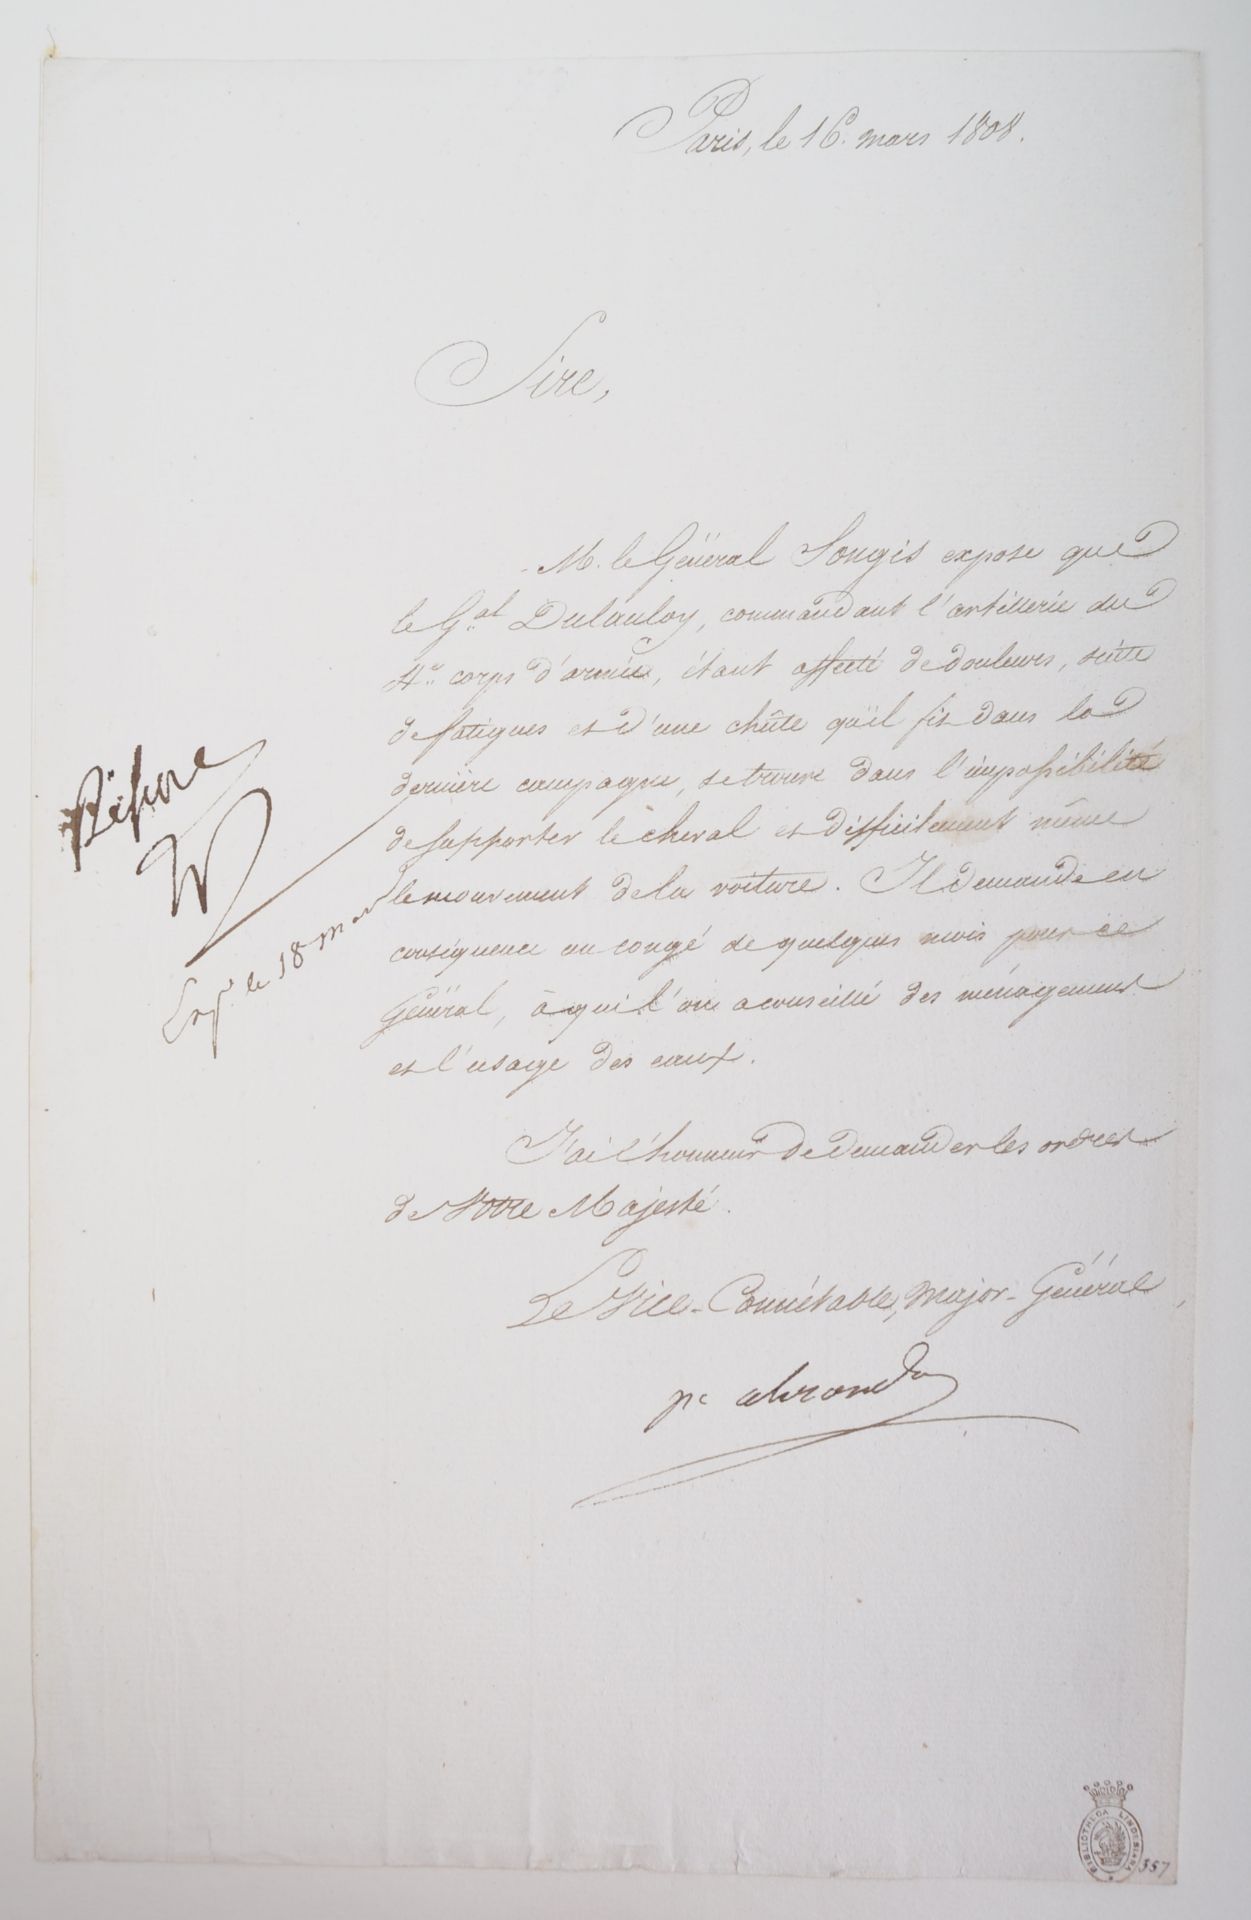 Paris, le 16. mars 1808.
Sire,
M. le Général Songis expose que
le G.al Dulauloy, commandant l'artillerie du
4.e corps d'armée, étant affecté de douleurs, suite
de fatigues et d'une chûte qu'il fit dans la
dernière campagne, se trouve dans l'impossibilité
de supporter le cheval et difficilement même
le mouvement de la voiture. Il demande en
conséquence un congé de quelques mois pour ce
Général, à qui l'on a conseillé des ménagemens
et l'usage des eaux.
J'ai l'honneur de demander les ordres
de Votre Majesté.
Le Vice-Connétable, Major-Général
pe alexandre
Refusé
N
Exp.é le 18 mars
BIBLIOTHECA LINDESIANA
357